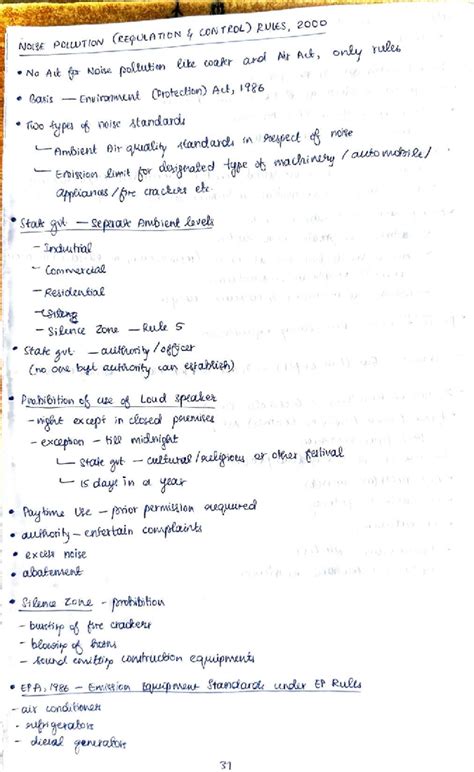 NOISE POLLUTION (REGULATION & CONTROL) RULES, 2000
• No Act for Noise pollution like water and Air Act, only rules
• Basis — Environment (Protection) Act, 1986
• Two types of noise standards
Ambient Air quality standards in respect of noise
Emission limit for designated type of machinery / automobile /
appliances / fire crackers etc.
• State gvt — Separate Ambient levels
- Industrial
- Commercial
- Residential
- Silence Zone — Rule 5
• State gvt — authority / officer
(no one byt authority can establish)
• Prohibition of use of Loud speaker
- night except in closed premises
- exception - till midnight
State gvt - cultural / religious or other festival
15 days in a year
• Daytime Use - prior permission required
• authority - entertain complaints
• excess noise
• abatement
• Silence Zone - prohibition
- bursting of fire crackers
- blowing of horns
- sound emitting construction equipments
• EPA, 1986 - Emission Equipment Standards under EP Rules
- air conditioner
- refrigerators
- diesel generators
31